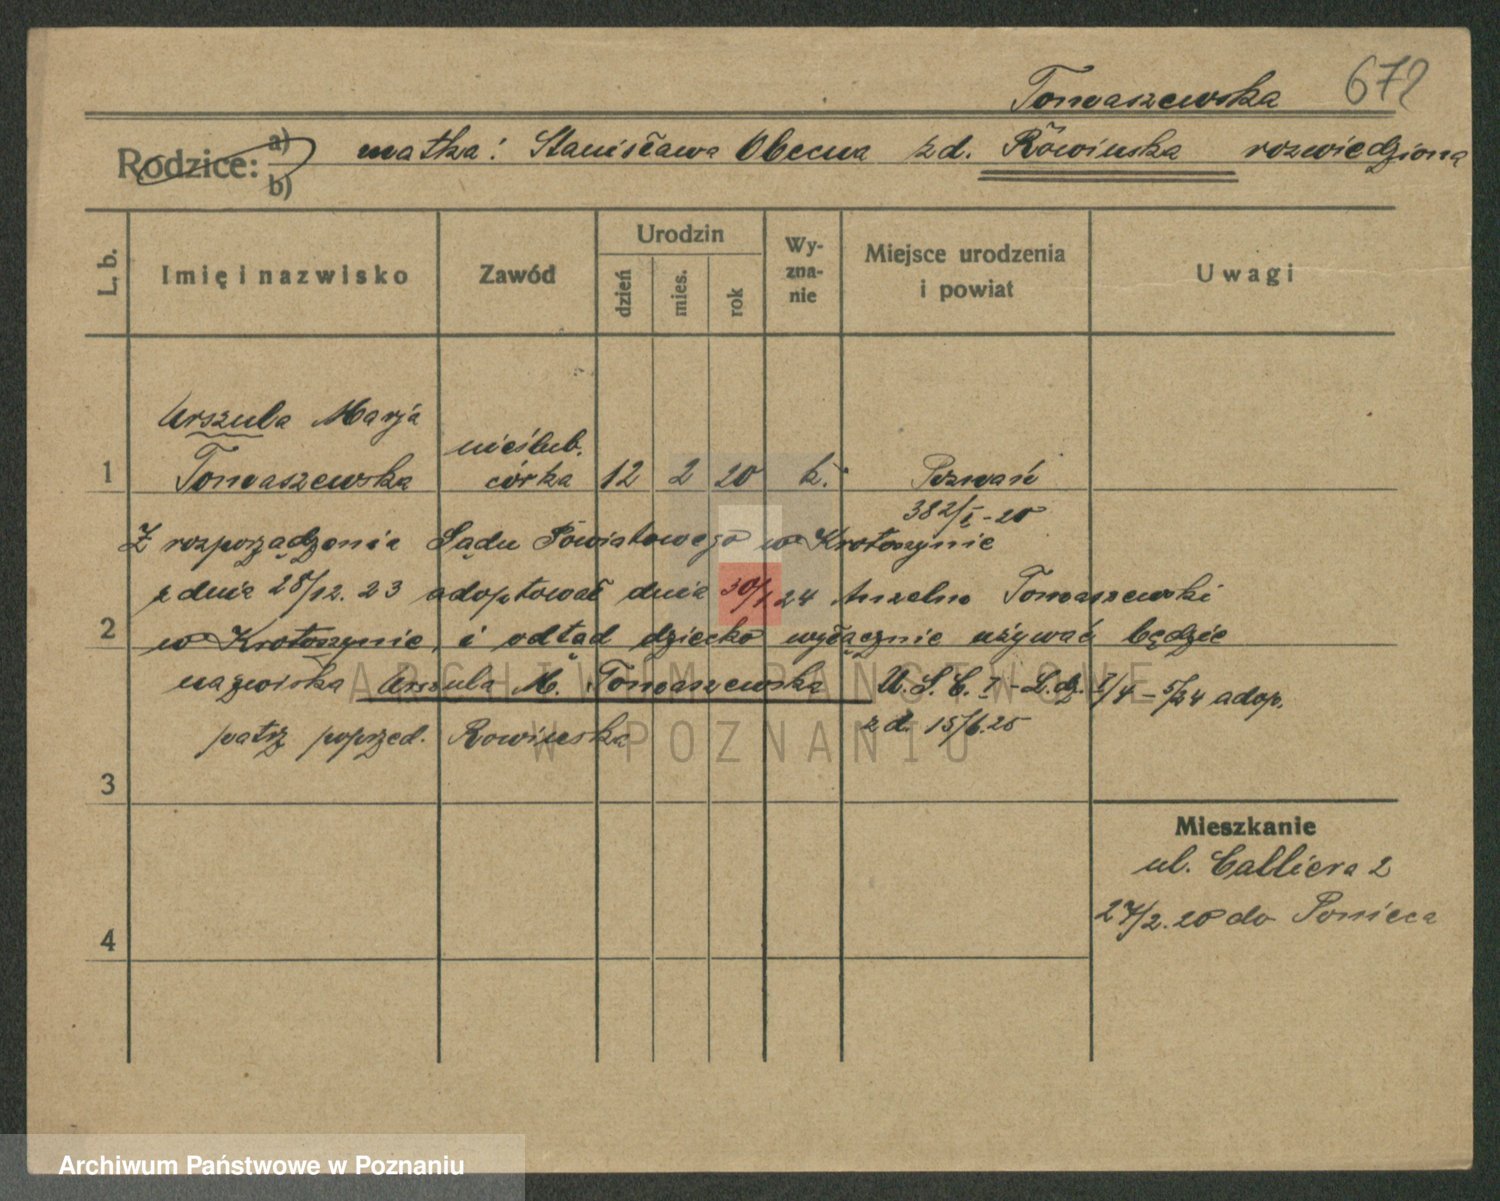 Tomaszewska 672
Rodzice: a) matka: Stanisława Obecna zd. Rówińska rozwiedziona
b)
L. b.
Imię i nazwisko
Zawód
Urodzin
dzień
mies.
rok
Wy-
zna-
nie
Miejsce urodzenia
i powiat
Uwagi
Urszula Marja
nieślub.
1 Tomaszewska córka 12 2 20 k. Poznań
382/I - 20
Z rozporządzenia Sądu Powiatowego w Krotoszynie
z dnia 28/12. 23 adoptował dnia 30/1 24 Anzelm Tomaszewski
2 w Krotoszynie, i odtąd dziecko wyłącznie używać będzie
nazwiska Urszula M. Tomaszewska U.S.C. I - L.dz. I/4 - 5/24 adop.
patrz poprzed. Rowinska zd. 15/6.25
3
Mieszkanie
ul. Calliera 2
27/2. 20 do Ponieca
4
ARCHIWUM PAŃSTWOWE
W POZNANIU
Archiwum Państwowe w Poznaniu